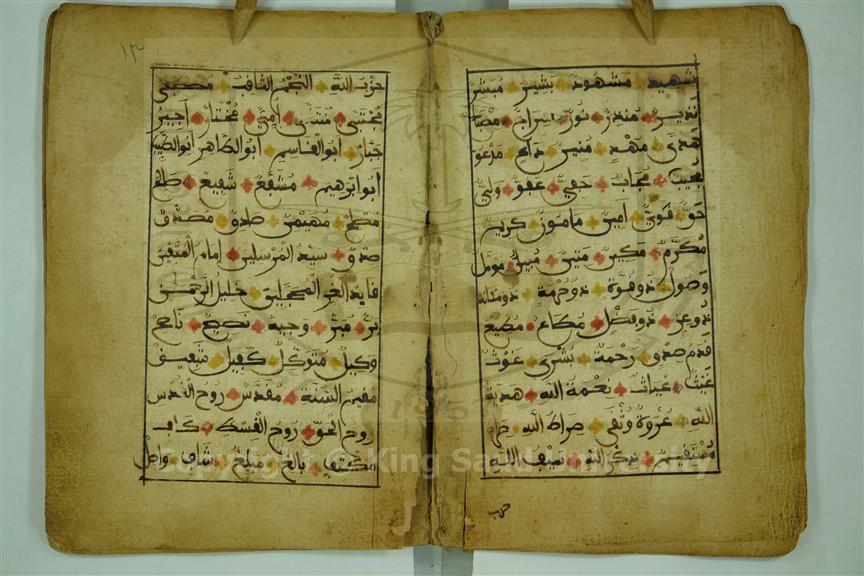 شهيد مشهود بشير مبشر
نذير منذر نور سراج مصبا
هدى مهد منير داع مدعو
مجيب مجاب حفي عفو ولي
حق قوي أمين مأمون كريم
مكرم مكين متين مبين مومل
وصول ذو قوة ذو حرمة ذو مكانة
ذو عز ذو فضل مطاع مطيع
قدم صدق رحمة بشرى غوث
غيث غياث نعمة الله هدية
الله عروة وثقى صراط الله صر
مستقيم ذكر الله سيف الله
حزب
١٣
حزب الله النجم الثاقب مصطفى
مجتبى منتقى أمي مختار أجير
جبار أبو القاسم أبو الطاهر أبو الطيب
أبو ابرهيم مشفع شفيع صالح
مصلح مهيمن صادق مصدق
صدق سيد المرسلين إمام المتقين
قايد الغر المحجلين خليل الرحمن
بر مبر وجيه نصيح ناصح
وكيل متوكل كفيل شفيق
مقيم السنة مقدس روح القدس
روح الحق روح القسط كاف
مكتف بالغ مبلغ شاف واصل
Copyright © King Saud University